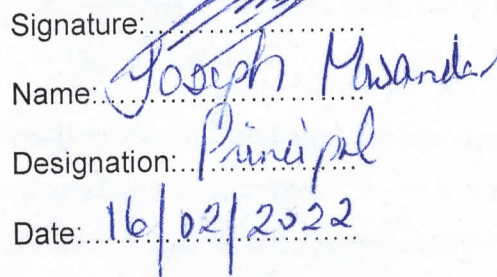 Signature:....................
Name: Joseph Mwanda
Designation: Principal
Date: 16/02/2022